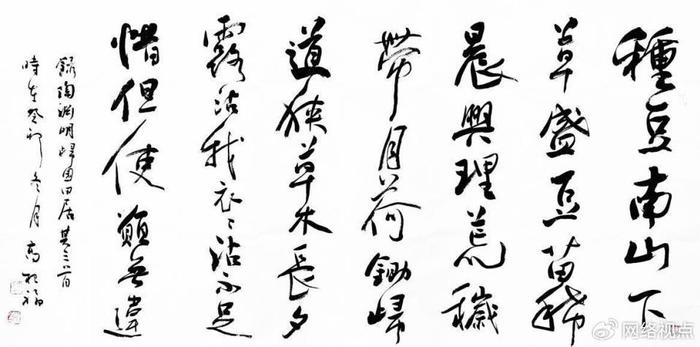 種豆南山下
草盛豆苗稀
晨興理荒穢
帶月荷鋤歸
道狹草木長夕
露沾我衣々沾不足
惜但使願無違
錄陶淵明歸園田居其三一首
時在癸卯冬月 高
@网络视点